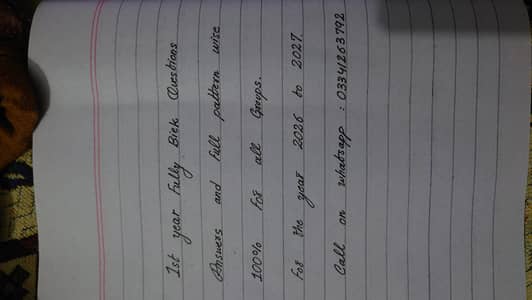 1st year Fully Biek Questions
Answers and Full pattern wise
100% For all Groups.
For the year 2026 to 2027
Call on whatsapp : 03341263792